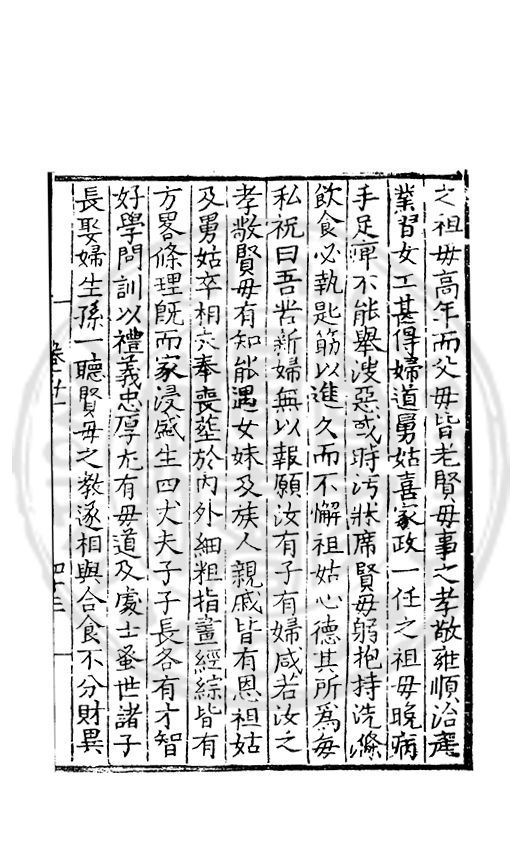 之祖毋高年而父毋皆老賢毋事之孝敬雍順治產
業習女工甚得婦道舅姑喜家政一任之祖毋晚病
手足痺不能舉溲惡或時汚牀席賢毋躬抱持洗滌
飲食必執匙筯以進久而不懈祖姑心德其所為每
私祝曰吾耄新婦無以報願汝有子有婦咸若汝之
孝敬賢毋有知能遇女妹及族人親戚皆有恩祖姑
及舅姑卒相夫奉喪塟於內外細粗指畫經綜皆有
方畧條理旣而家浸盛生四丈夫子子長各有才智
好學問訓以禮義忠厚尤有毋道及處士蚤世諸子
長娶婦生孫一聽賢毋之教遂相與合食不分財異
卷廿一
四十三